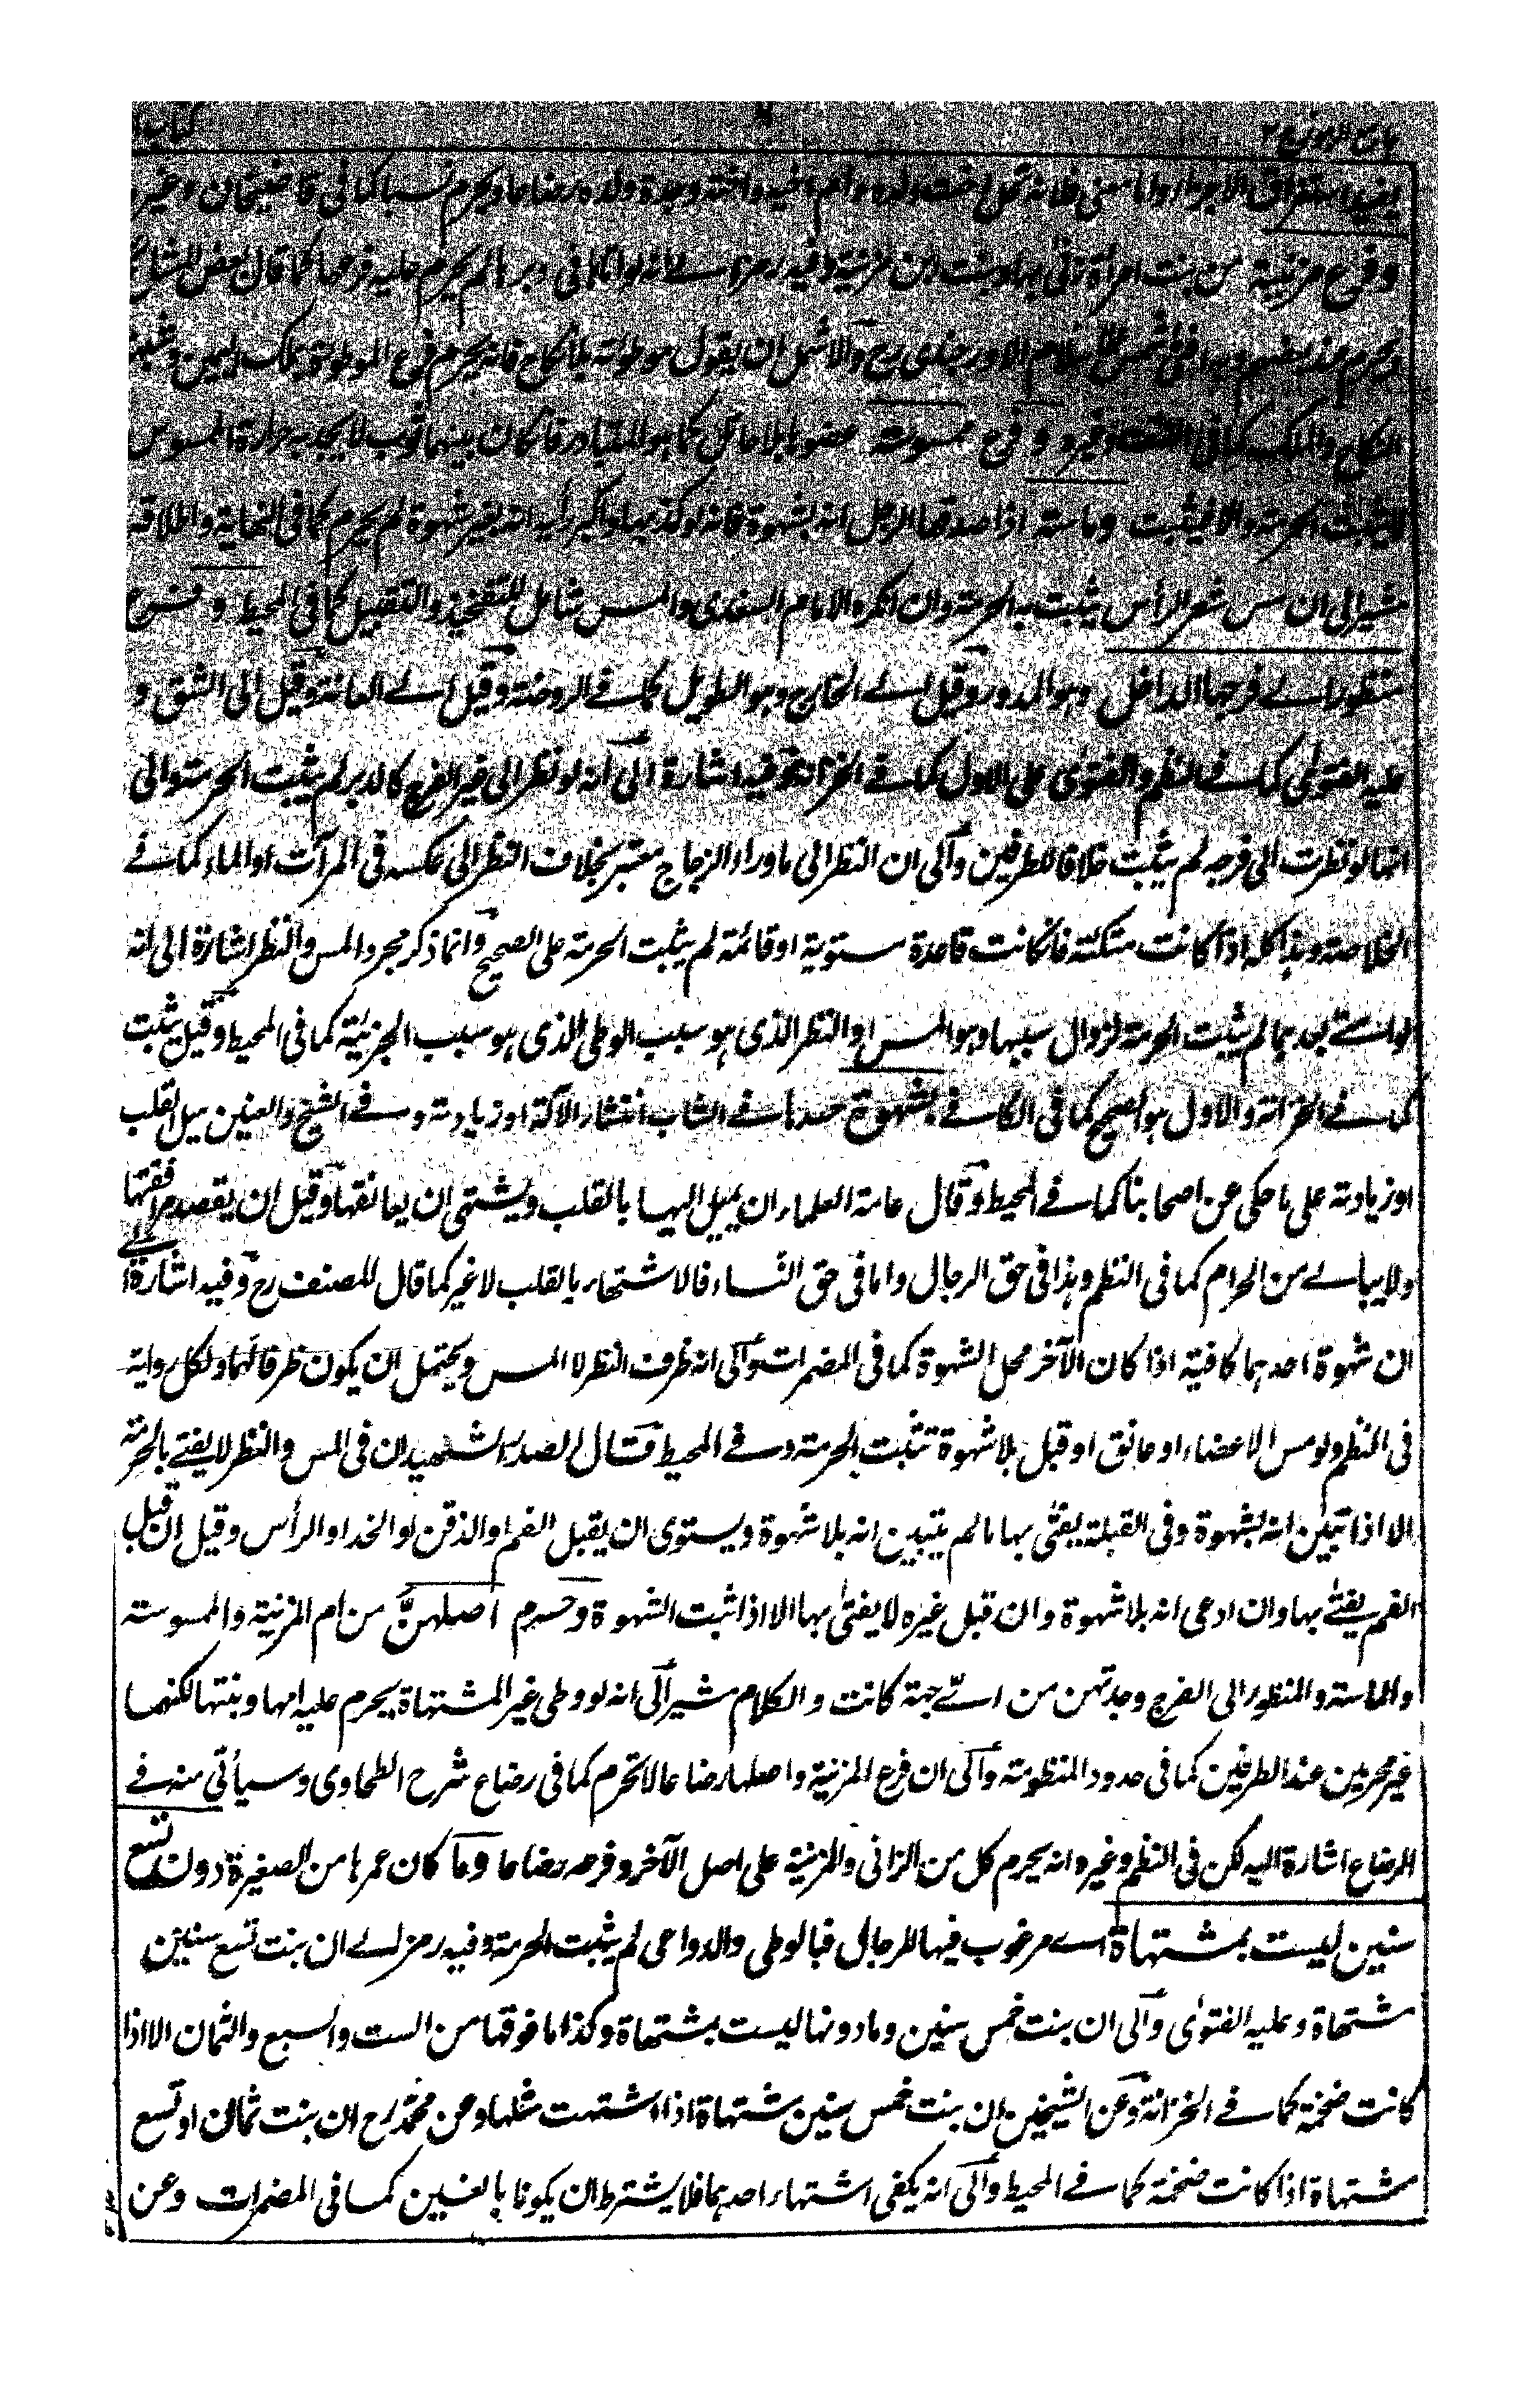 جامع الرموز ج ٢ كتاب
يفيد استغراق الاجزاء واما معنى فلانه تحل اخت ولده وام اخيه واخته وجدة ولده رضاعا ويحرم نسبا كما في قاضيخان وغيره
وفرع مزنيته من بنت امرأة زنى بها وبنت ابن مزنيته وفيه رمز الے انه لو اتاها في دبرها لم يحرم عليه فرعها كما قال بعض المشائخ
ويحرم عند بعضهم وبه افتى شمس الاسلام الاوزجندى رح والاشمل ان يقول موطوئته بلا نكاح فانه يحرم فرع الموطوئة بملك اليمين وشبهة
النكاح والملك كما في النتف وغيره وفرع ممسوسته عضوا بلا حائل كما هو المتبادر فان كان بينهما ثوب لا يجد به حرارة الممسوس
لا يثبت الحرمة والا يثبت وماسته اذا صدقها الرجل انه بشهوة فانه لو كذبها واكبر رأيه انه بغير شهوة لم يحرم كما في النهاية واطلاقه
مشير الى ان مس شعر الرأس يثبت به الحرمة وان انكره الامام السغدى والمس شامل للتفخيذ والتقبيل كما في المحيط وفرع
منظور الے فرجها الداخل وهو المدور وقيل الے الخارج وهو الطويل كما فے الروضة وقيل الے العانة وقيل الى الشق و
عليه الفتوى كما فے النظم والفتوى على الاول كما فے الخزانة وفيه اشارة الى انه لو نظر الى غير الفرج كالدبر لم يثبت الحرمة والى
انها لو نظرت الى فرجه لم يثبت خلافا للطرفين والى ان النظر الى ما وراء الزجاج معتبر بخلاف النظر الى عكسه في المرآت او الماء كما فے
الخلاصة وهذا كله اذا كانت متكئة فان كانت قاعدة مستوية او قائمة لم يثبت الحرمة على الصحيح وانما ذكر مجرد المس والنظر اشارة الى انه
لو امنے بعدهما لم يثبت الحرمة لزوال سببها وهو المس او النظر الذى هو سبب الوطى الذى هو سبب الجزئية كما في المحيط وقيل يثبت
كما فے الخزانة والاول هو الصحيح كما في الكافے بشهوة حدها فے الشاب انتشار الآلة او زيادته وفے الشيخ والعنين ميل القلب
او زيادته على ما حكى عن اصحابنا كما فے المحيط وقال عامة العلماء ان يميل اليها بالقلب ويشتهى ان يعانقها وقيل ان يقصد مرافقتها
ولا يبالے من الحرام كما في النظم وهذا في حق الرجال واما في حق النساء فالاشتهاء بالقلب لا غير كما قال المصنف رح وفيه اشارة الے
ان شهوة احدهما كافية اذا كان الآخر محل الشهوة كما في المضمرات والى انه ظرف النظر لا المس ويحتمل ان يكون ظرفا لهما ولكل رواية
في النظم ولو مس الاعضاء او عانق او قبل بلا شهوة تثبت الحرمة وفے المحيط قال الصدر الشهيد ان في المس والنظر لا يفتے بالحرمة
الا اذا تبين انه بشهوة وفي القبلة يفتى بها ما لم يتبين انه بلا شهوة ويستوى ان يقبل الفم او الذقن او الخد او الرأس وقيل ان قبل
الفم يفتے بها وان ادعى انه بلا شهوة وان قبل غيره لا يفتى بها الا اذا ثبت الشهوة وحرم اصلهنّ من ام المزنية والممسوسة
والماسة والمنظور الى الفرج وجدتهن من اےّ جهة كانت والكلام مشير الى انه لو وطى غير المشتهاة يحرم عليه امها وبنتها لكنهما
غير محرمين عند الطرفين كما في حدود المنظومة والى ان فرع المزنية واصلها رضاعا لا تحرم كما في رضاع شرح الطحاوى وسيأتى منه فے
الرضاع اشارة اليه لكن في النظم وغيره انه يحرم كل من الزانى والمزنية على اصل الآخر وفرعه رضاعا وما كان عمرها من الصغيرة دون تسع
سنين ليست بمشتهاة اے مرغوب فيها للرجال فبالوطى والدواعى لم يثبت الحرمة وفيه رمز الے ان بنت تسع سنين
مشتهاة وعليه الفتوى والى ان بنت خمس سنين وما دونها ليست بمشتهاة وكذا ما فوقها من الست والسبع والثمان الا اذا
كانت ضخمة كما فے الخزانة وعن الشيخين ان بنت خمس سنين مشتهاة اذا اشتهت مثلها وعن محمد رح ان بنت ثمان او تسع
مشتهاة اذا كانت ضخمة كما فے المحيط والى انه يكفى اشتهاء احدهما فلا يشترط ان يكونا بالغين كما في المضمرات وعن